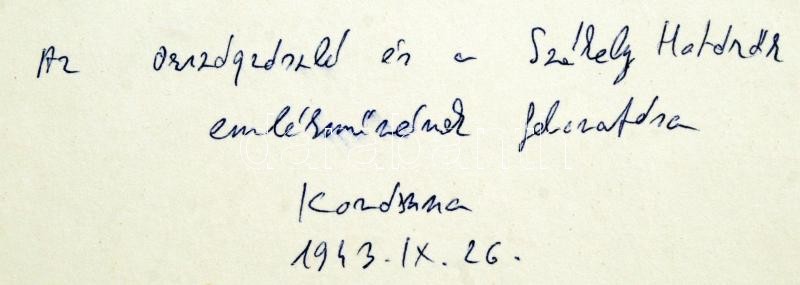 Az országzászló és a Székely Határőr
emlékművének felavatása
Kovászna
1943.IX.26.